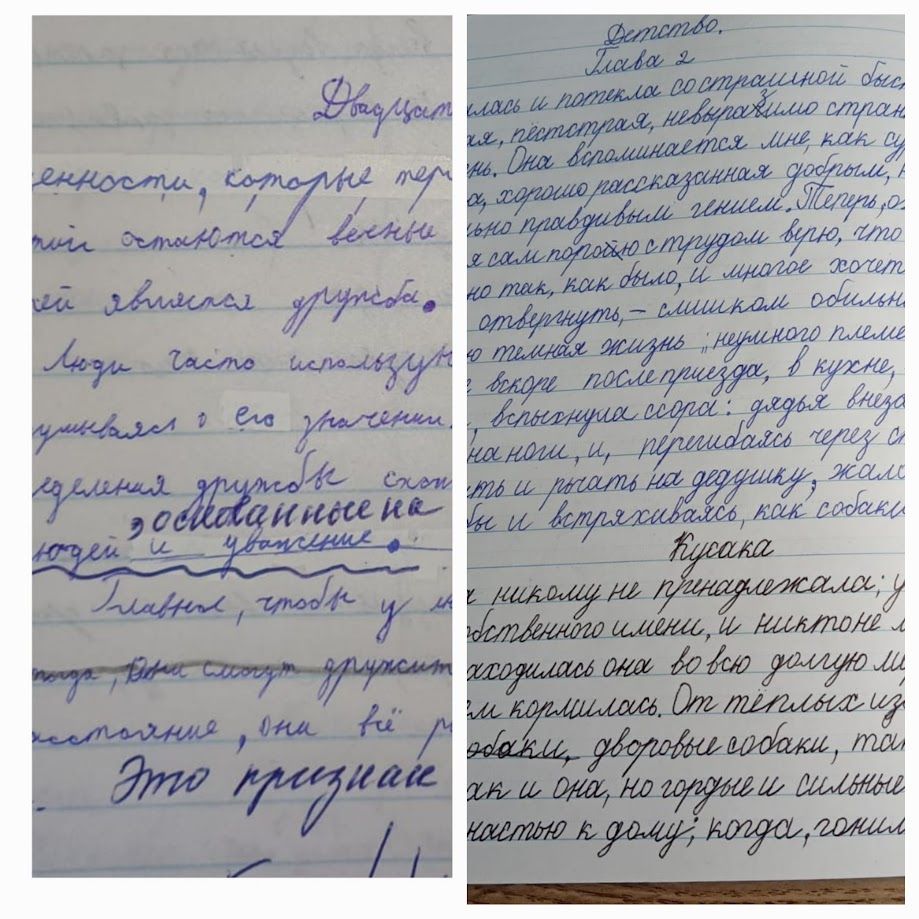 Двадцат
енности, которые тер
остаются вечные
ей является дружба.
Люди часто использую
умываясь о его значении.
еделения дружбы схож
основанные на
юдей и уважение.
Главное, чтобы у
тогда, Они смогут дружит
асстояние, они всё р
Это признак
Детство.
Глава 2
илась и потекла со страшной быст
ая, пёстрая, невыразимо стран
нь. Она вспоминается мне, как су
а, хорошо рассказанная добрым, н
ьно правдивым гением. Теперь, о
я сам порою с трудом верю, что
но так, как было, и многое хочет
отвергнуть, – слишком обильн
ю темная жизнь "неумного племе
вскоре после приезда, в кухне,
, вспыхнула ссора: дядья внеза
на ноги, и, перегибаясь через ст
ть и рычать на дедушку, жало
бы и встряхиваясь, как собаки
Кусака
а никому не принадлежала; у
обственного имени, и никто не м
аходилась она во всю долгую
ем кормилась. От тёплых изб
собаки, дворовые собаки, так
ак и она, но гордые и сильные
ностью к дому; когда, гоним